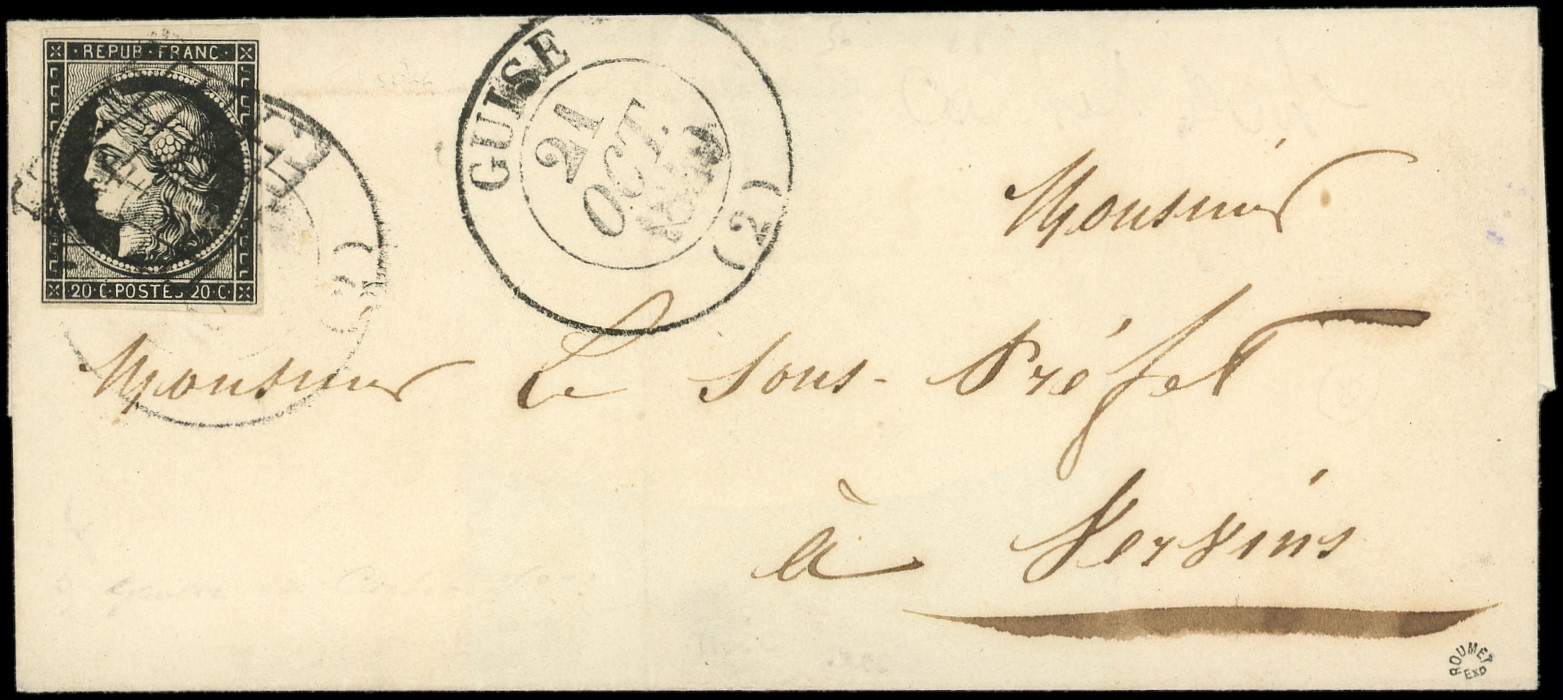 REPUB·FRANC·
20·C·POSTES 20·C·
GUISE
21
OCT.
(2)
Monsieur
Monsieur Le Sous-Préfet
à Vervins
ROUMET
EXP